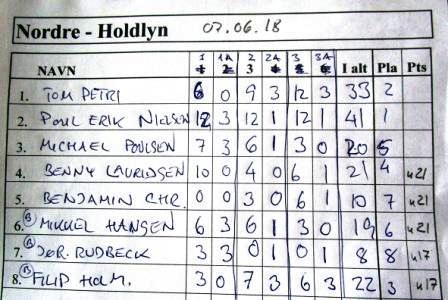 Nordre - Holdlyn 07.06.18
NAVN 1 1A 2 2A 3 3A I alt Pla Pts
1. TOM PETRI 6 0 9 3 12 3 33 2
2. POUL ERIK NIELSEN 12 3 12 1 12 1 41 1
3. MICHAEL POULSEN 7 3 6 1 3 0 20 5
4. BENNY LAURIDSEN 10 0 4 0 6 1 21 4 u21
5. BENJAMIN CHR. 0 0 3 0 6 1 10 7 u21
6. B MIKKEL HANSEN 6 3 6 1 3 0 19 6 u21
7. B RUDBECK 3 3 0 1 0 1 8 8 u17
8. B FILIP HOLM. 3 0 7 3 6 3 22 3 u17